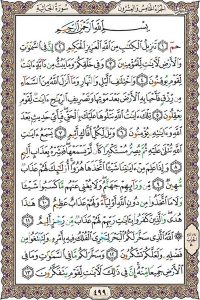 الجزء الخامس والعشرون
سورة الجاثية
بِسْمِ اللَّهِ الرَّحْمَٰنِ الرَّحِيمِ
حمٓ ١ تَنزِيلُ الْكِتَٰبِ مِنَ اللَّهِ الْعَزِيزِ الْحَكِيمِ ٢ إِنَّ فِي السَّمَٰوَٰتِ
وَالْأَرْضِ لَءَايَٰتٍ لِّلْمُؤْمِنِينَ ٣ وَفِي خَلْقِكُمْ وَمَا يَبُثُّ مِن دَآبَّةٍ ءَايَٰتٌ
لِّقَوْمٍ يُوقِنُونَ ٤ وَاخْتِلَٰفِ الَّيْلِ وَالنَّهَارِ وَمَآ أَنزَلَ اللَّهُ مِنَ السَّمَآءِ
مِن رِّزْقٍ فَأَحْيَا بِهِ الْأَرْضَ بَعْدَ مَوْتِهَا وَتَصْرِيفِ الرِّيَٰحِ ءَايَٰتٌ لِّقَوْمٍ
يَعْقِلُونَ ٥ تِلْكَ ءَايَٰتُ اللَّهِ نَتْلُوهَا عَلَيْكَ بِالْحَقِّ فَبِأَيِّ حَدِيثٍ بَعْدَ
اللَّهِ وَءَايَٰتِهِ يُؤْمِنُونَ ٦ وَيْلٌ لِّكُلِّ أَفَّاكٍ أَثِيمٍ ٧ يَسْمَعُ ءَايَٰتِ
اللَّهِ تُتْلَىٰ عَلَيْهِ ثُمَّ يُصِرُّ مُسْتَكْبِرًا كَأَن لَّمْ يَسْمَعْهَا فَبَشِّرْهُ بِعَذَابٍ أَلِيمٍ
٨ وَإِذَا عَلِمَ مِنْ ءَايَٰتِنَا شَيْـًٔا اتَّخَذَهَا هُزُوًا أُو۟لَٰٓئِكَ لَهُمْ عَذَابٌ
مُّهِينٌ ٩ مِّن وَرَآئِهِمْ جَهَنَّمُ وَلَا يُغْنِي عَنْهُم مَّا كَسَبُوا۟ شَيْـًٔا
وَلَا مَا اتَّخَذُوا۟ مِن دُونِ اللَّهِ أَوْلِيَآءَ وَلَهُمْ عَذَابٌ عَظِيمٌ ١٠
هَٰذَا هُدًى وَالَّذِينَ كَفَرُوا۟ بِـَٔايَٰتِ رَبِّهِمْ لَهُمْ عَذَابٌ مِّن رِّجْزٍ أَلِيمٌ ١١
اللَّهُ الَّذِي سَخَّرَ لَكُمُ الْبَحْرَ لِتَجْرِيَ الْفُلْكُ فِيهِ بِأَمْرِهِ وَلِتَبْتَغُوا۟
مِن فَضْلِهِ وَلَعَلَّكُمْ تَشْكُرُونَ ١٢ وَسَخَّرَ لَكُم مَّا فِي السَّمَٰوَٰتِ وَمَا فِي
الْأَرْضِ جَمِيعًا مِّنْهُ إِنَّ فِي ذَٰلِكَ لَءَايَٰتٍ لِّقَوْمٍ يَتَفَكَّرُونَ ١٣
٤٩٩